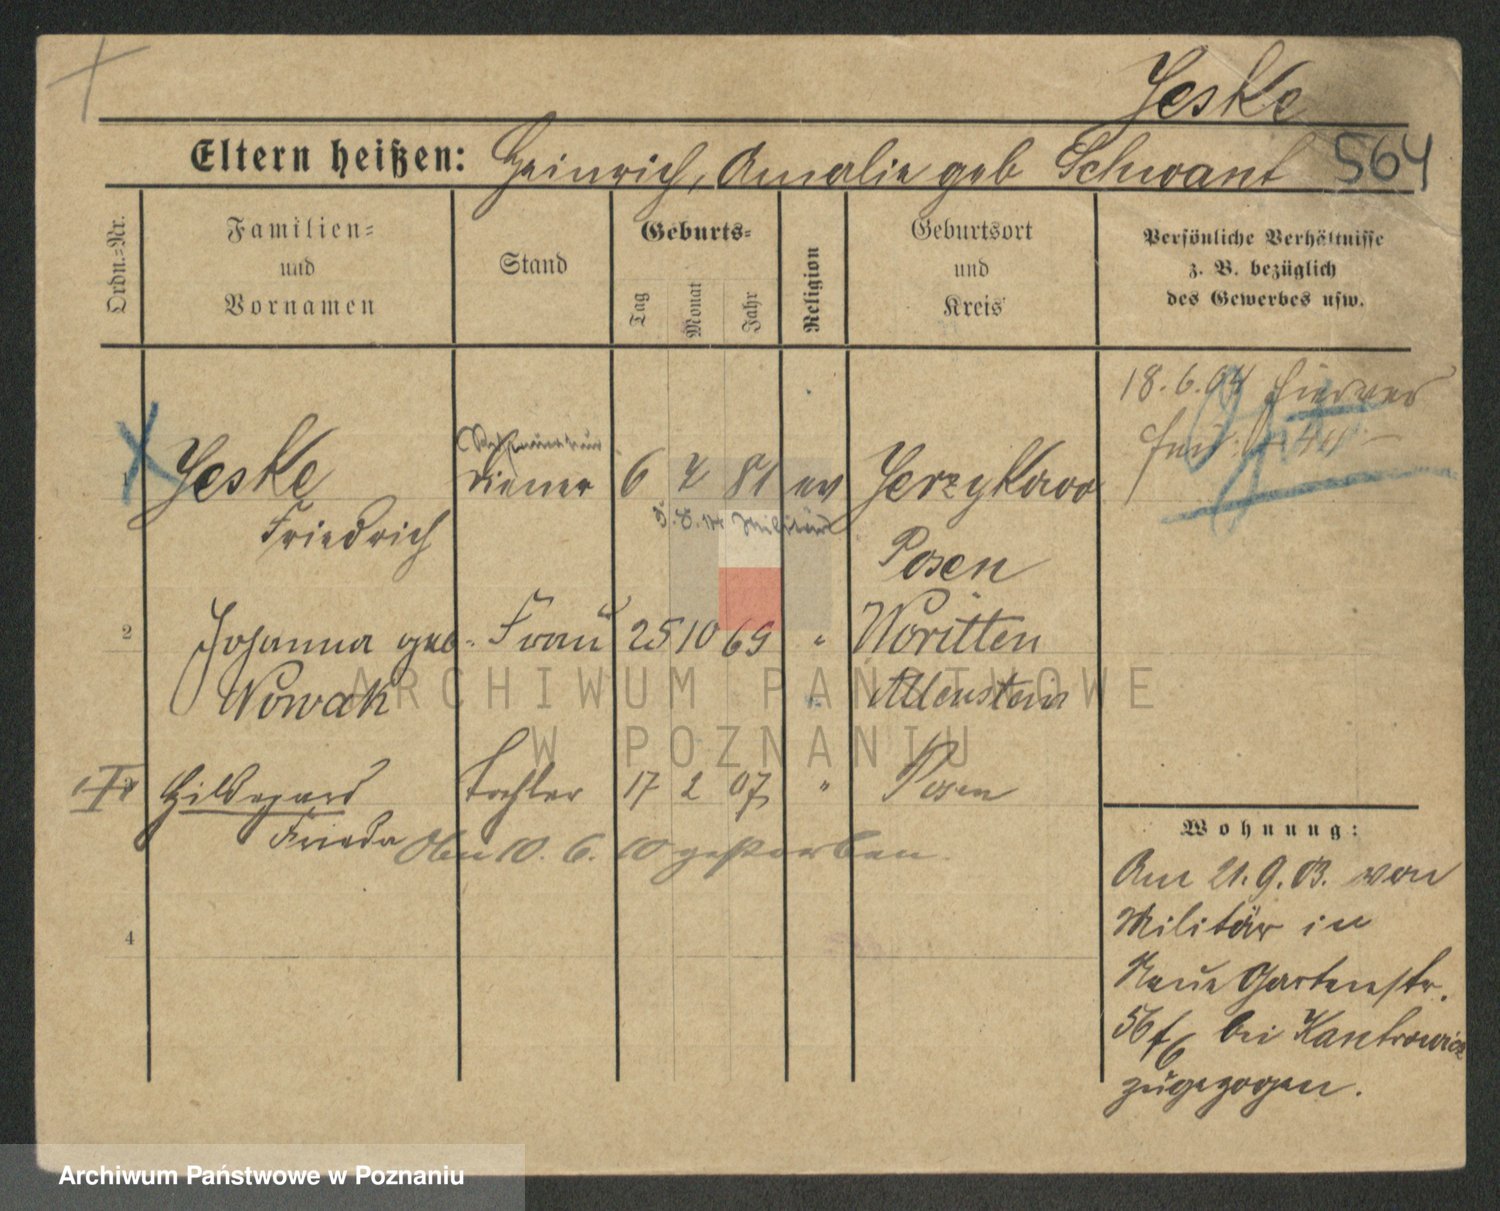 Jeske
Eltern heißen: Heinrich, Amalie geb Schwant 564
Ordn.=Nr.
Familien=
und
Vornamen
Stand
Geburts=
Tag
Monat
Jahr
Religion
Geburtsort
und
Kreis
Persönliche Verhältnisse
z. B. bezüglich
des Gewerbes usw.
18.6.04
1 Jeske Diener 6 7 81 ev Jerzykowo
Friedrich Militär
Posen
2 Johanna geb. Frau 25 10 69 " Woritten
Nowak Allenstein
3 Hildegard Tochter 17 2 07 " Posen
Frieda
10. 6. 10 gestorben.
4
Wohnung:
Am 21.9.03. von
Militär in
Neue Gartenstr.
56 bei Kantrowicz
zugezogen.
ARCHIWUM PAŃSTWOWE
W POZNANIU
Archiwum Państwowe w Poznaniu